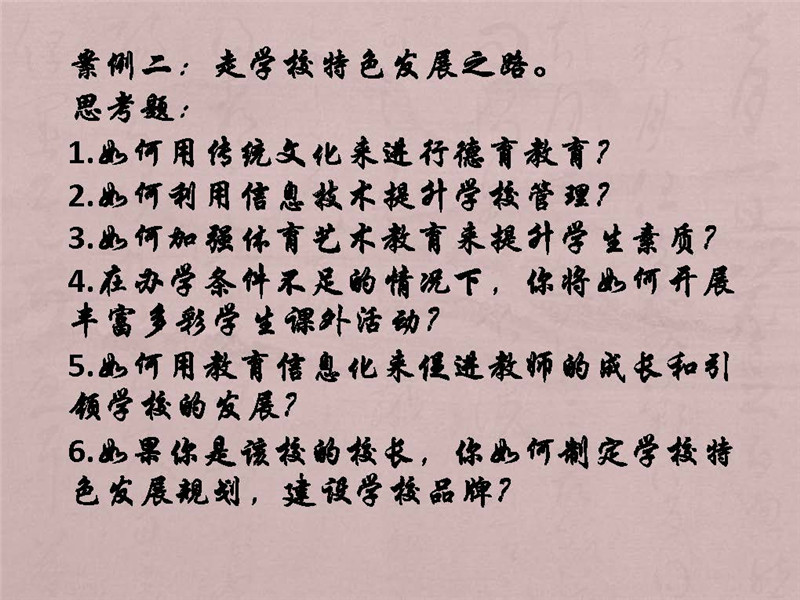 案例二：走学校特色发展之路。
思考题：
1.如何用传统文化来进行德育教育？
2.如何利用信息技术提升学校管理？
3.如何加强体育艺术教育来提升学生素质？
4.在办学条件不足的情况下，你将如何开展
丰富多彩学生课外活动？
5.如何用教育信息化来促进教师的成长和引
领学校的发展？
6.如果你是该校的校长，你如何制定学校特
色发展规划，建设学校品牌？